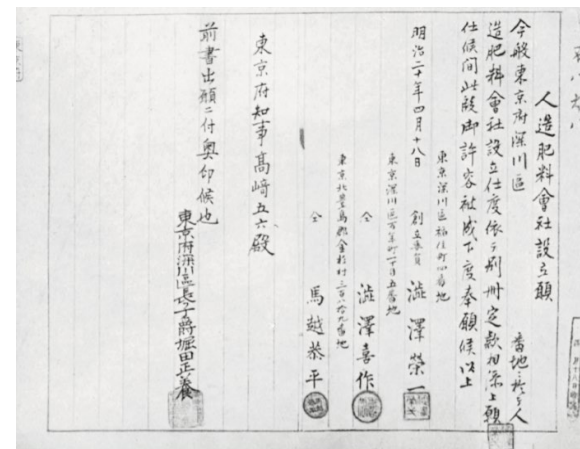 人造肥料會社設立願
今般東京府深川區　　　番地ニ於テ人
造肥料會社設立仕度依テ別冊定款相添上願
仕候間此段御許容被成下度奉願候以上
東京深川區福住町四番地
明治二十年四月十八日　創立委員　澁澤榮一
東京深川區万年町一丁目五番地
仝　澁澤喜作
東京北豊島郡金杉村三百八拾九番地
仝　馬越恭平
東京府知事髙崎五六殿
前書出願ニ付奥印候也
東京府深川區長子爵堀田正養